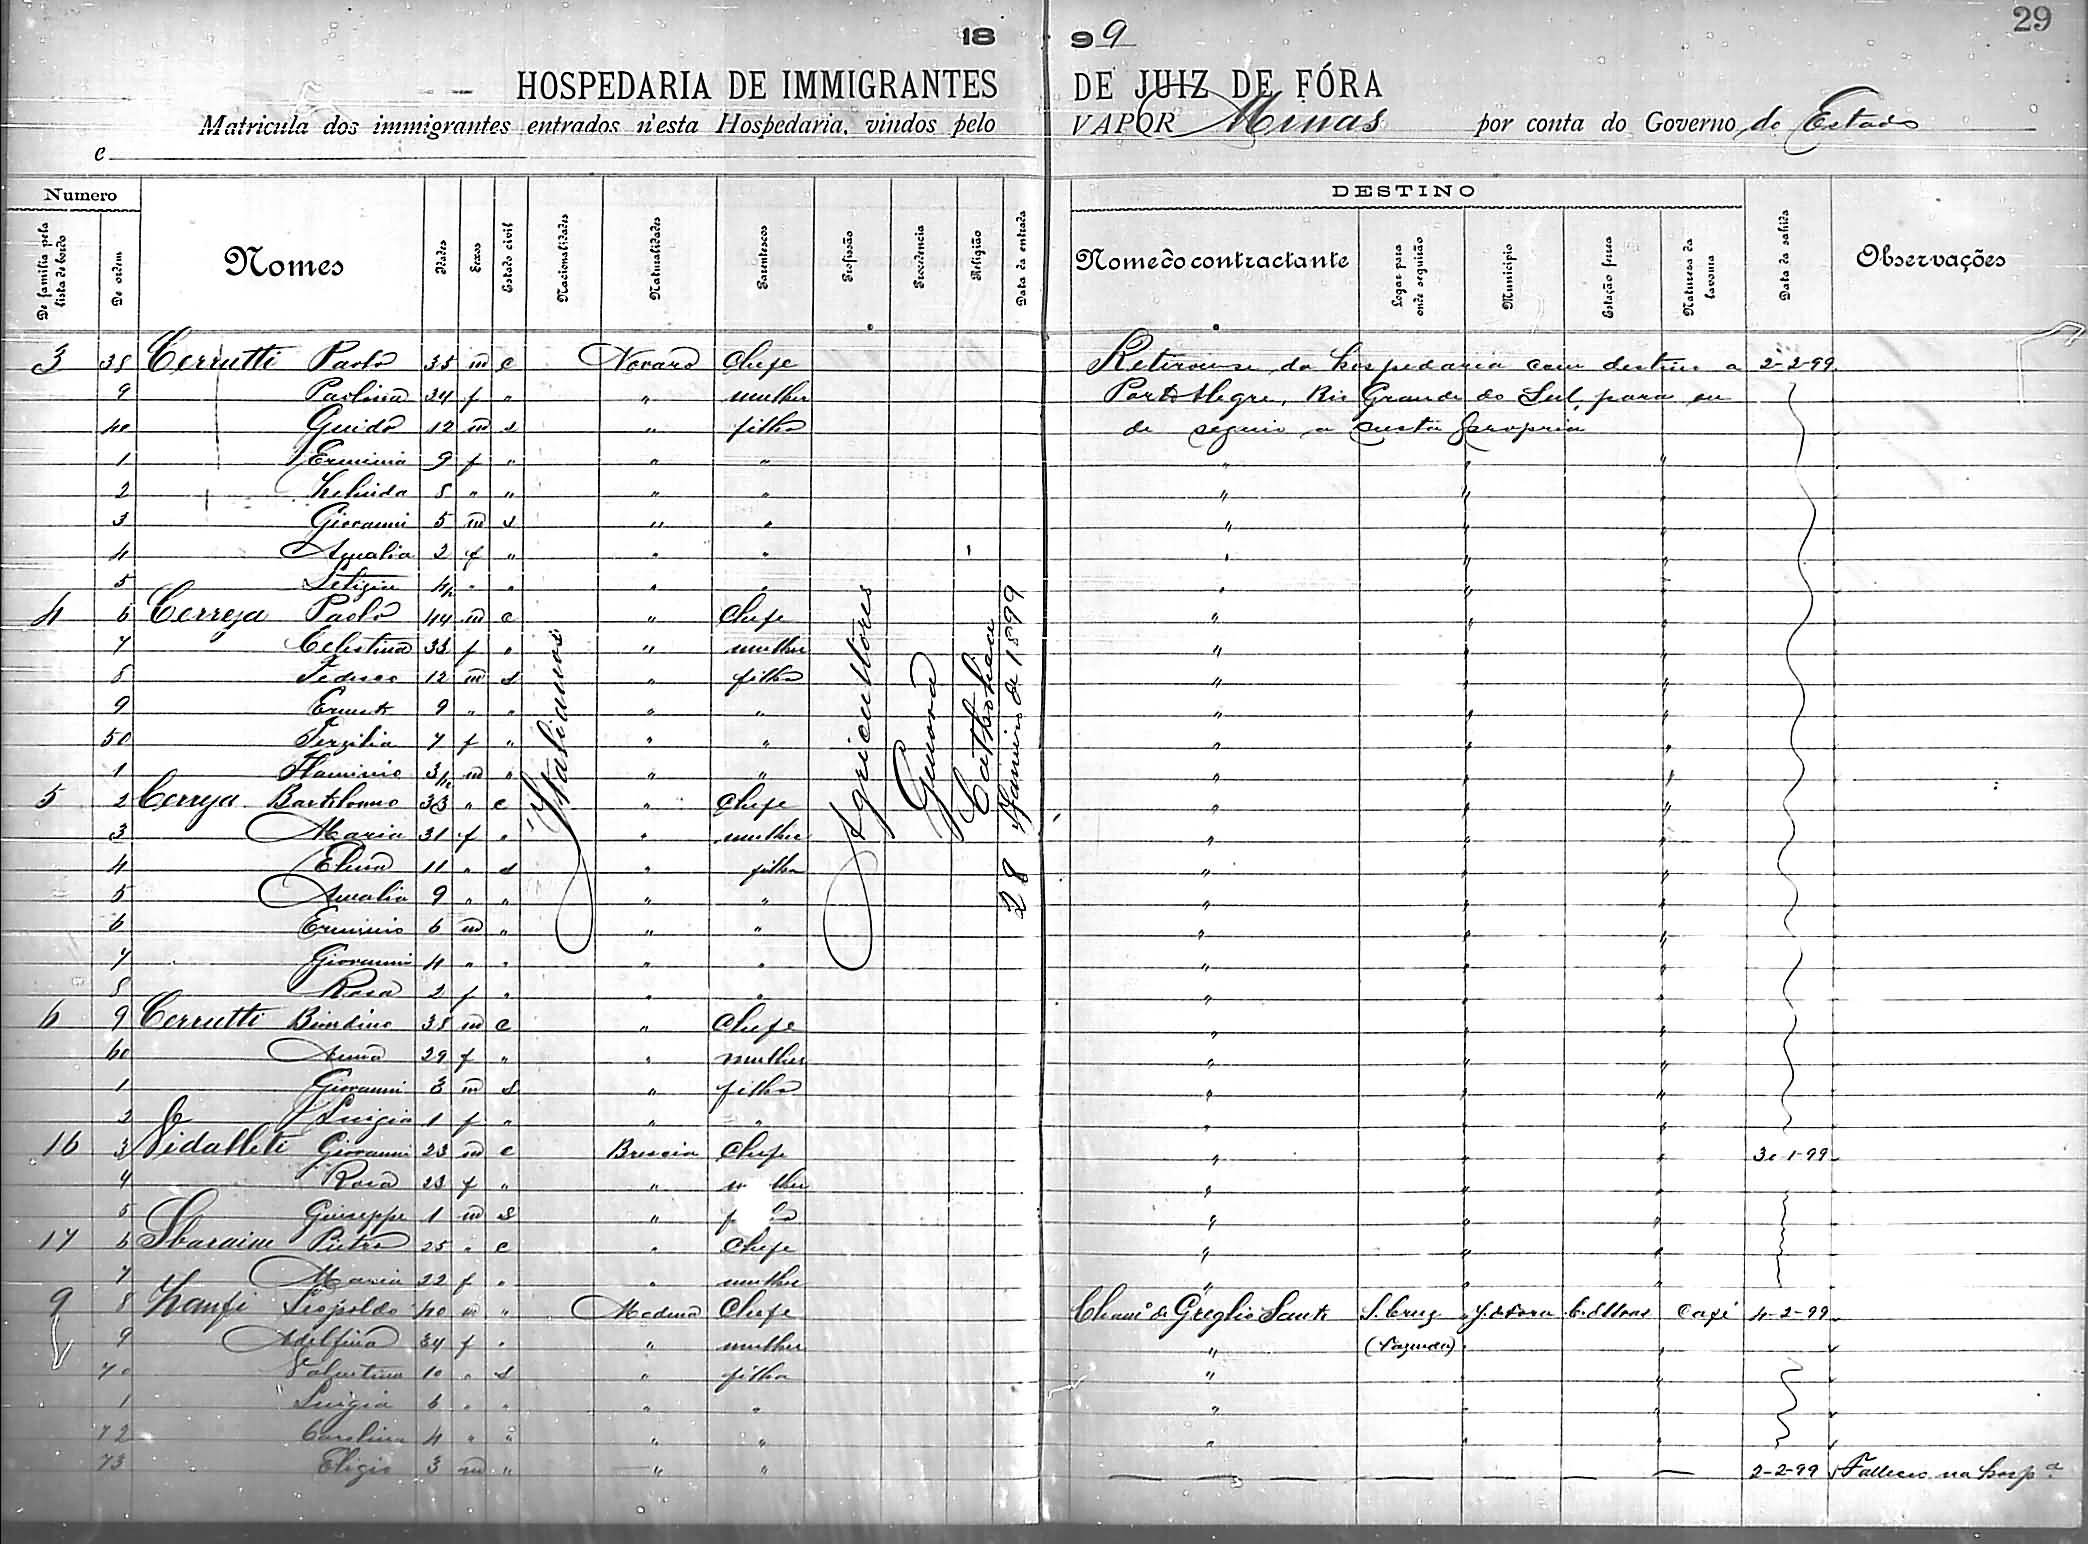 29
18 99
HOSPEDARIA DE IMMIGRANTES DE JUIZ DE FÓRA
Matricula dos immigrantes entrados n'esta Hospedaria, vindos pelo VAPOR Minas por conta do Governo do Estado
e
Numero
De familia pela lista de bordo
De ordem
Nomes
Idades
Sexos
Estado civil
Nacionalidades
Naturalidades
Parentescos
Profissão
Procedencia
Religião
Data da entrada
DESTINO
Nome do contractante
Logar para onde seguirão
Municipio
Estação ferrea
Naturesa da lavoura
Data da sahida
Observações
3 38 Cerrutti Paolo 35 m c Novara Chefe Retirou-se da hospedaria com destino a 2-2-99
9 Paolina 34 f " " mulher Porto Alegre, Rio Grande do Sul, para on
40 Guido 12 m s " filho de seguio a custa propria
1 Erminia 9 f " " " " " "
2 8 " " " " " " "
3 Giovanni 5 m s " " " " "
4 Amalia 2 f " " " " " "
5 Letizia " " " " " " "
4 6 Cerreja Paolo 44 m c " Chefe " " "
7 Celestina 33 f " " mulher " " "
8 12 m s " filho " " "
9 Ernesto 9 " " " " " " "
50 Tersilia 7 f " " " " " "
1 Flaminio m " " " " " "
5 2 Cerreja Bartolomeo 33 " c " Chefe " " "
3 Maria 31 f " " mulher " " "
4 Elena 11 " s " filha " " "
5 Amalia 9 " " " " " " "
6 Erminio 6 m " " " " " "
7 Giovanni 4 " " " " " " "
8 Rosa 2 f " " " " " "
6 9 Cerrutti 38 m c " Chefe " " "
60 Anna 29 f " " mulher " " "
1 Giovanni 3 m s " filho " " "
2 Luigia 1 f " " " " " "
16 3 Vidalleti Giovanni 23 m c Brescia Chefe " " " 30-1-99
4 Rosa 23 f " " mulher " " "
5 Giuseppe 1 m s " " " "
17 6 Sbaraini Pietro 25 " c " Chefe " " "
7 Maria 22 f " " mulher " " "
9 8 Zanfi Leopoldo 40 m " Modena Chefe S. Cruz J. de Fora Café 4-2-99
9 Adelfina 34 f " " mulher " (Fazenda) " "
70 Valentina 10 " s " filha " "
1 Luigia 6 " " " " " "
72 Carolina 4 " " " " " " "
73 Eligio 3 m " " " 2-2-99 Falleceu na hosp.ª
Italianos
Agricultores
Genova
Catholica
28 Janeiro de 1899